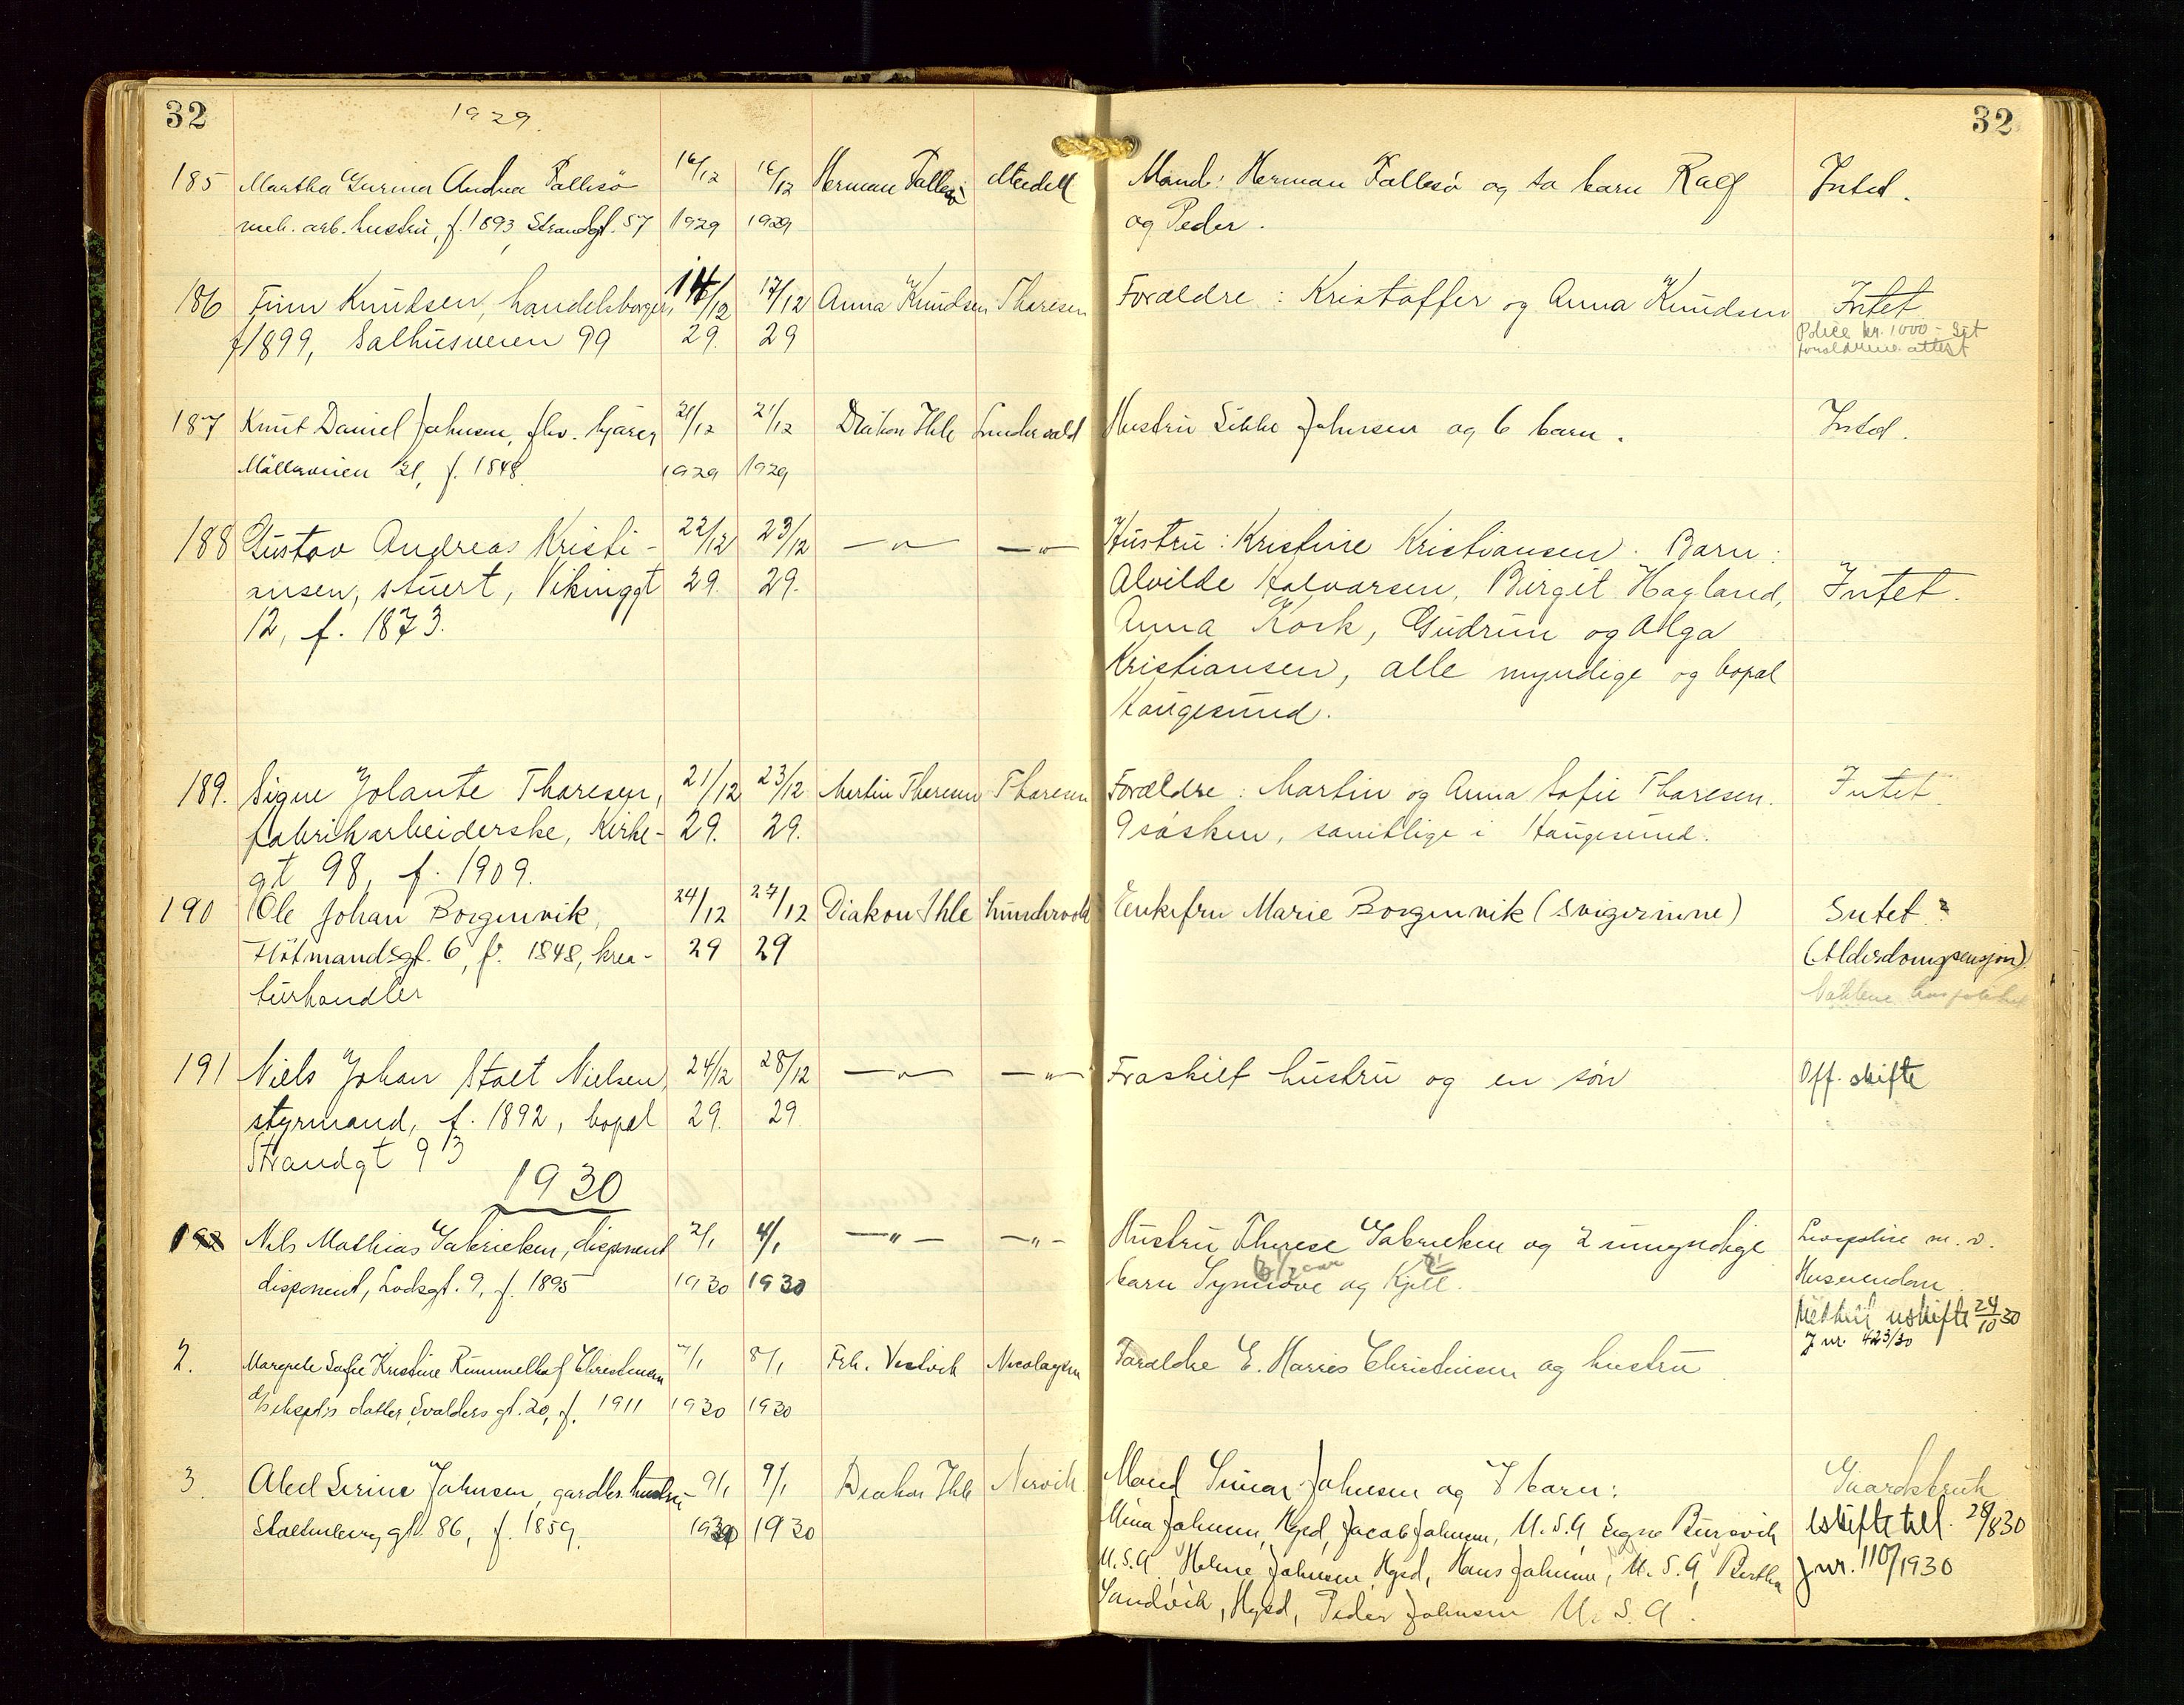 32
1929.
32
185 Martha Gurina Andrea Fallesö 16/12 16/12 Herman Fallesö Meidell Mand: Herman Fallesö og to barn Ralf Intet.
mek. arb. hustru, f. 1893, Strandgt. 57 1929 1929 og Peder.
186 Finn Knudsen, handelsborger, 14/12 17/12 Anna Knudsen Thoresen Forældre: Kristoffer og Anna Knudsen Intet
f 1899, Salhusveien 99 29. 29 Police kr. 1000 - Set
forældrene attest
187 Knut Daniel Johnsen, fhv. kjører 21/12 21/12 Diakon Ihle Lundevold Hustru Sikke Johnsen og 6 barn. Intet.
Möllerveien 21, f. 1848. 1929 1929
188 Gustav Andreas Kristi- 22/12 23/12 —"— —"— Hustru: Kristine Kristiansen. Barn:
ansen, stuert, Vikinggt 29. 29. Alvilde Halvorsen, Birgit Hagland, Intet.
12, f. 1873. Anna Rosk, Gudrun og Olga
Kristiansen, alle myndige og bopæl
Haugesund.
189. Signe Jolante Thoresen, 21/12 23/12 Martin Thoresen Thoresen Forældre: Martin og Anna Sofie Thoresen. Intet.
fabrikarbeiderske, Kirke- 29. 29. 9 søsken, samtlige i Haugesund.
gt 98, f. 1909.
190 Ole Johan Borgenvik, 24/12 27/12 Diakon Ihle Lundevold Enkefru Marie Borgenvik (svigerinne) Intet?
Flötmandsgt. 6, f. 1848, krea- 29 29 (Alderdomspensjon)
turhandler
191 Niels Johan Stolt Nielsen, 24/12 28/12 —"— —"— Fraskilt hustru og en sön Off. skifte
styrmand, f. 1892, bopæl 29. 29.
Strandgt 93
1930
1 Nils Mathias Gabrielsen, disponent 2/1 4/1 —"— —"— Hustru Therese Gabrielsen og 2 umyndige Livspolise m. v.
disponent, Lodsgt. 9, f. 1895 1930 1930 barn Synnöve og Kjell. Huseiendom
uskifte 24/10 30
J nr. 423/30
2. Margrete Sofie Kristine Rummelhof Christensen 7/1 8/1 Frk. Vestvik Nicolaysen Foraldre E. Harris Christensen og hustru
datter, Svolders gt. 20, f. 1911 1930 1930
3. Abel Serine Johnsen, gardbr. hustru 9/1 9/1 Diakon Ihle Nervik Mand Simon Johnsen og 7 barn: Gaardsbruk
Stoltenberg gt. 86, f. 1859. 1930 1930 Mina Johnsen, Hgsd, Jacob Johnsen, U.S.A Signe U.skifte till. 28/8 30
U.S.A., Helene Johnsen, Hgsd, Hans Johnsen, U.S.A, Bertha J nr. 110/1930
Sandvik, Hgsd, Peder Johnsen U.S.A.